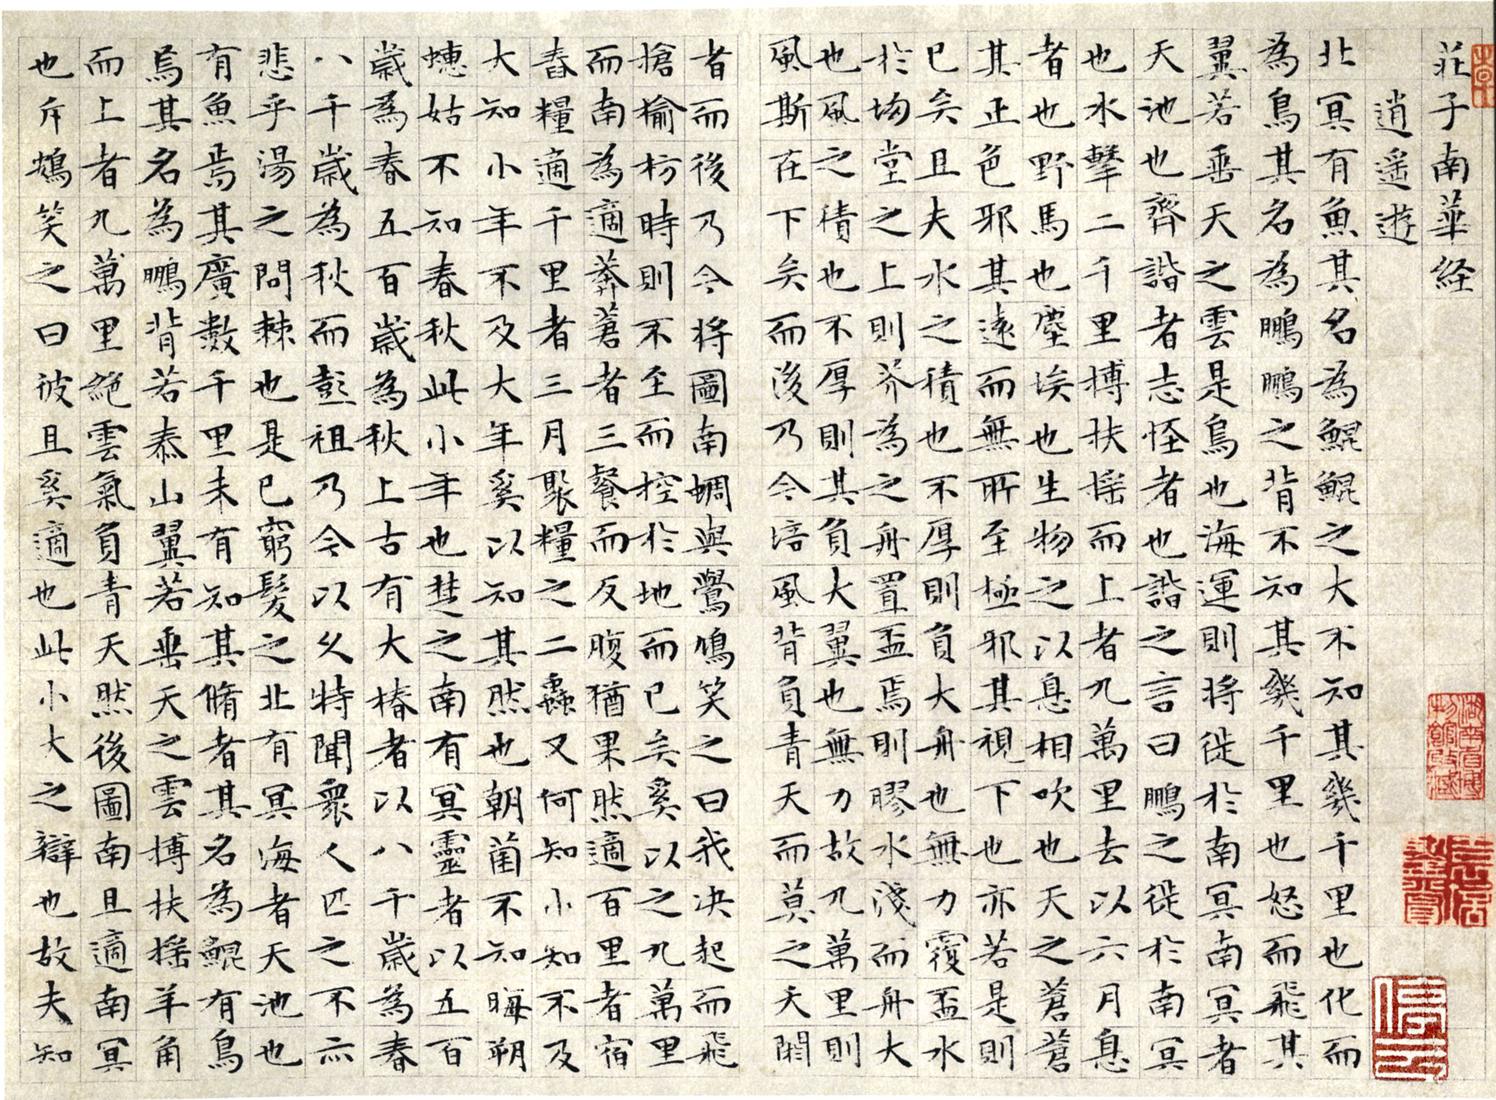 莊子南華経
逍遥遊
北冥有魚其名為鯤鯤之大不知其幾千里也化而
為鳥其名為鵬鵬之背不知其幾千里也怒而飛其
翼若垂天之雲是鳥也海運則将徙於南冥南冥者
天池也齊諧者志怪者也諧之言曰鵬之徙於南冥
也水擊二千里摶扶摇而上者九萬里去以六月息
者也野馬也塵埃也生物之以息相吹也天之蒼蒼
其正色邪其遠而無所至極邪其視下也亦若是則
已矣且夫水之積也不厚則負大舟也無力覆盃水
於坳堂之上則芥為之舟置盃焉則膠水淺而舟大
也風之積也不厚則其負大翼也無力故九萬里則
風斯在下矣而後乃今培風背負青天而莫之夭閼
者而後乃今将圖南蜩與鷽鳩笑之曰我决起而飛
搶榆枋時則不至而控於地而已矣奚以之九萬里
而南為適莽蒼者三餐而反腹猶果然適百里者宿
舂糧適千里者三月聚糧之二蟲又何知小知不及
大知小年不及大年奚以知其然也朝菌不知晦朔
蟪姑不知春秋此小年也楚之南有冥靈者以五百
歳為春五百歳為秋上古有大椿者以八千歳為春
八千歳為秋而彭祖乃今以久特聞衆人匹之不亦
悲乎湯之問棘也是已窮髪之北有冥海者天池也
有魚焉其廣數千里未有知其脩者其名為鯤有鳥
焉其名為鵬背若泰山翼若垂天之雲摶扶摇羊角
而上者九萬里絶雲氣負青天然後圖南且適南冥
也斥鴳笑之曰彼且奚適也此小大之辯也故夫知